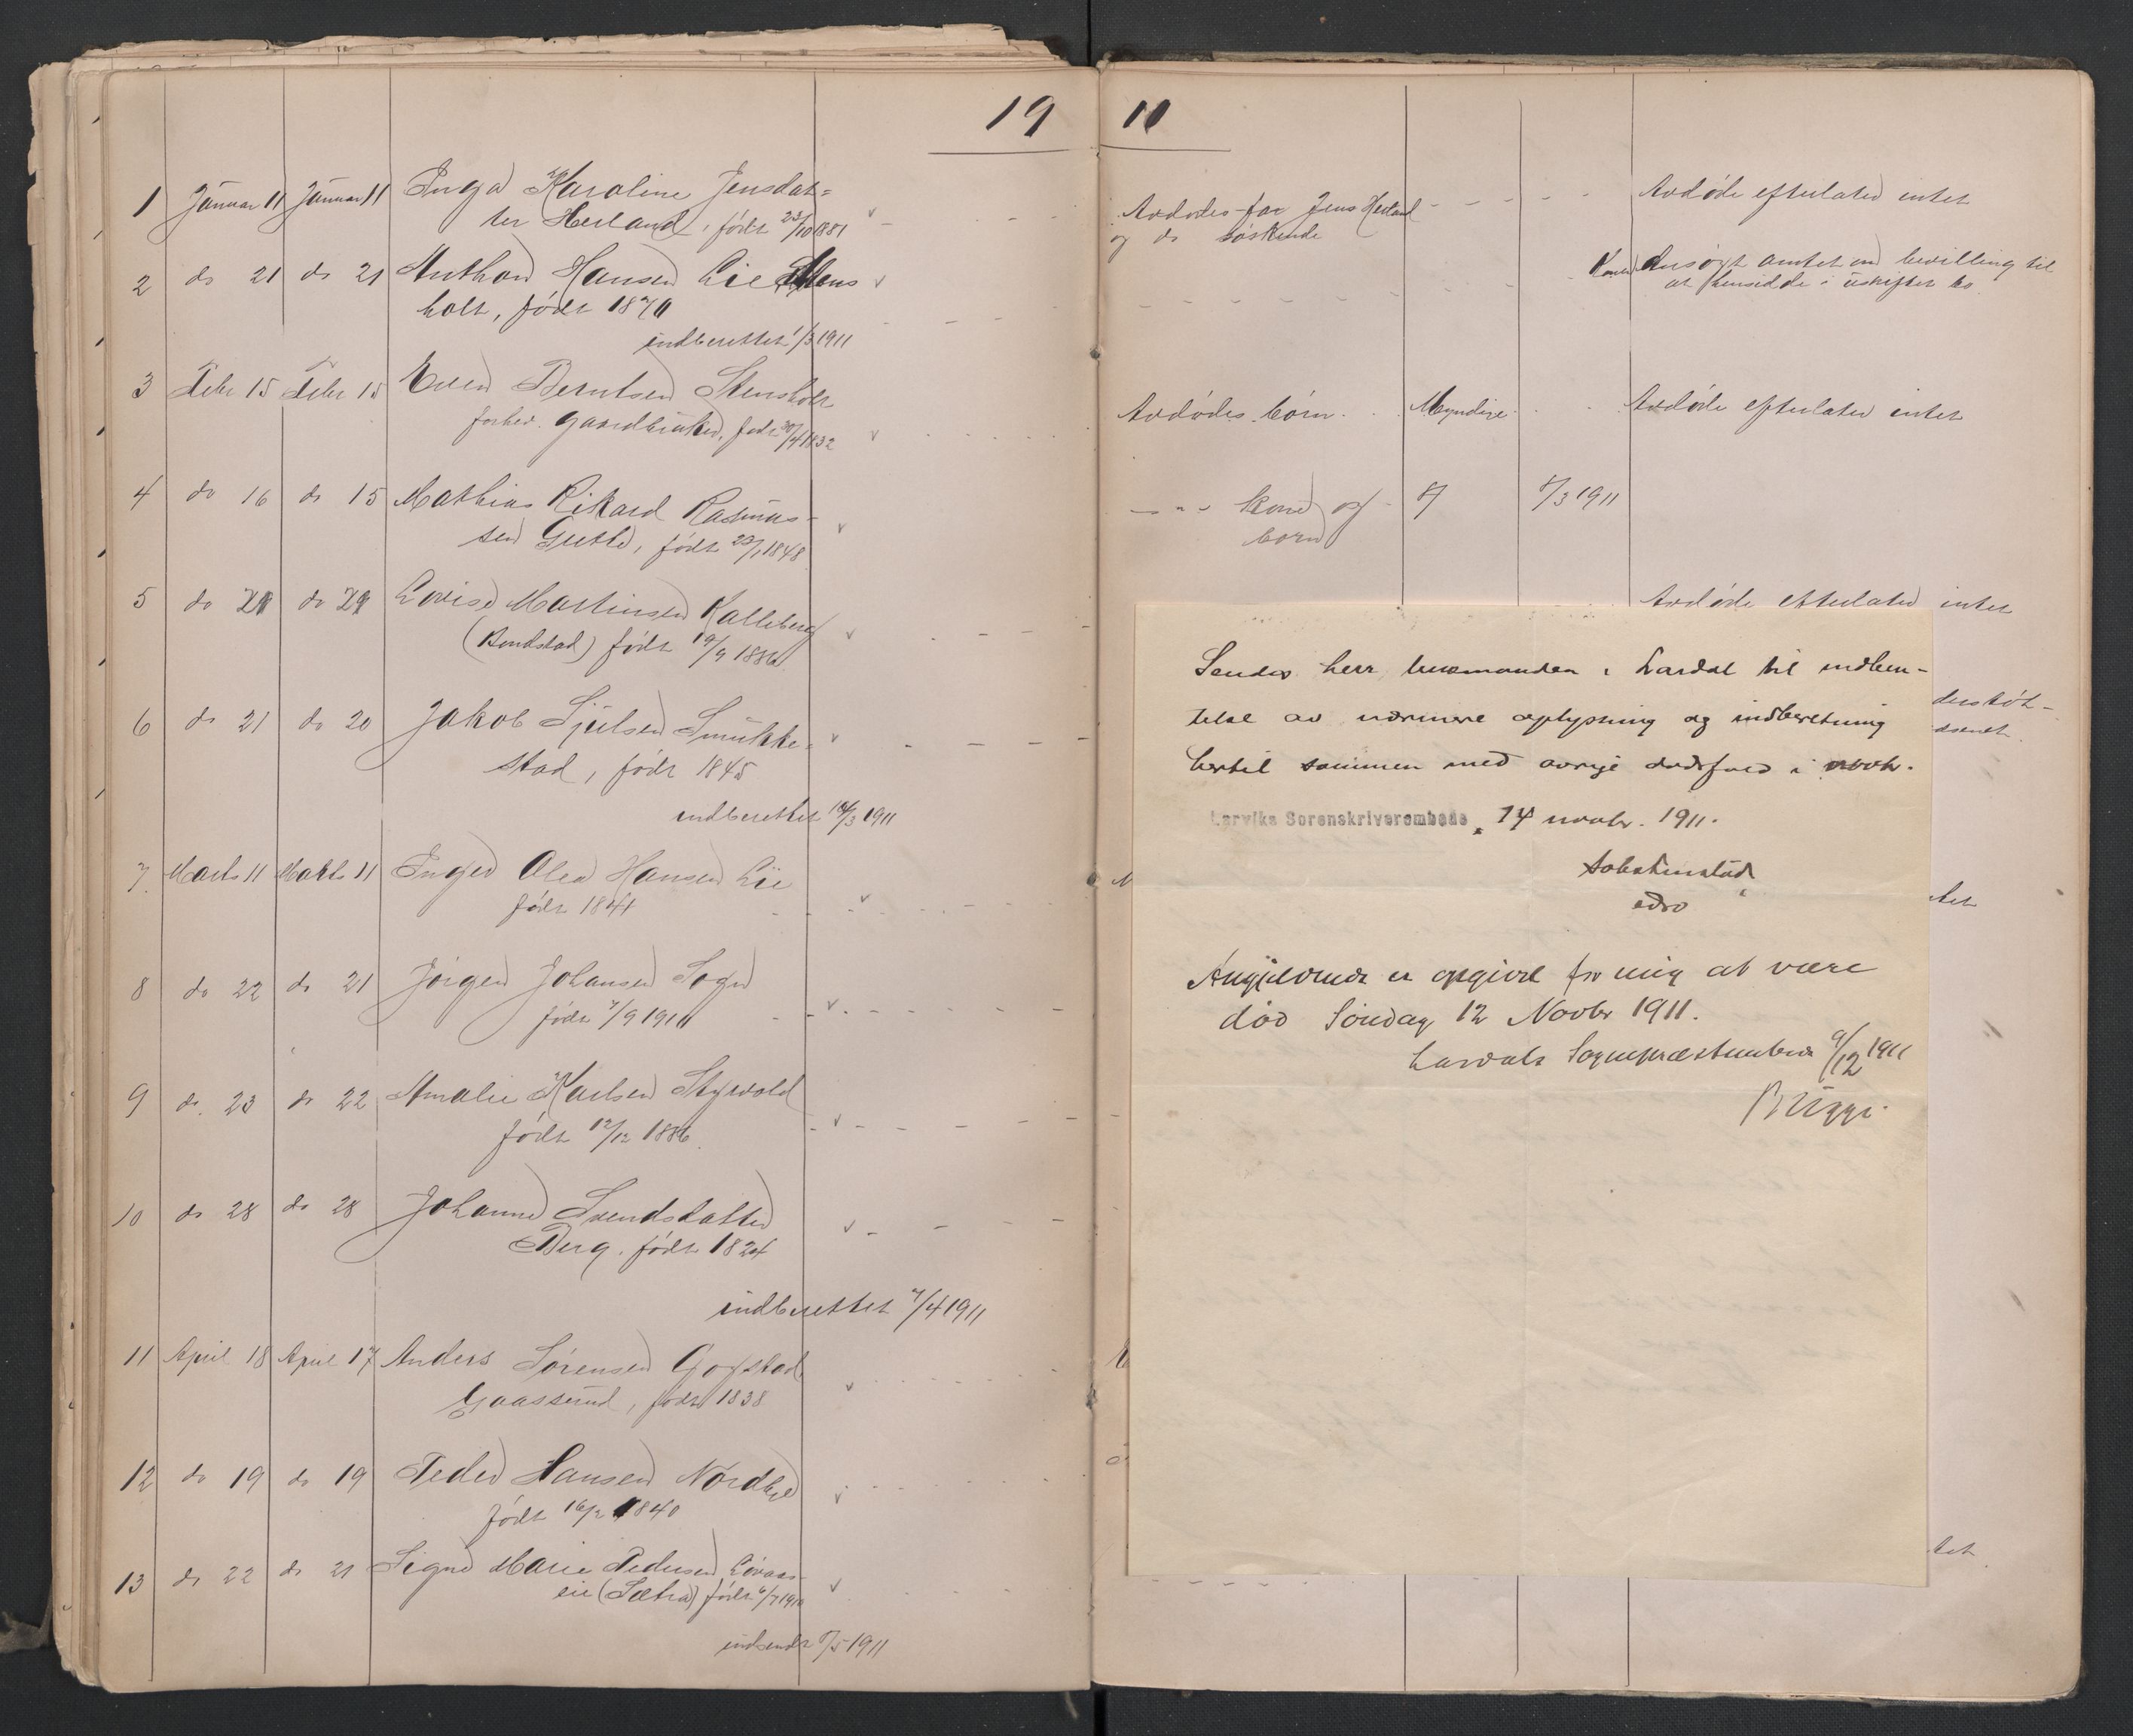 19 11
1 Januar 11 Januar 11 Inga Karoline Jensdat=
ter Herland, født 23/10 1881
2 do 21 do 21 Anthon Hansen Lie Stens
holt, født 1870
indberettet 1/3 1911
3 Febr 15 Febr 15 Even Berntsen Stensholt
forhev. gaardbruker, født 30/4 1832
4 do 16 do 15 Mathias Rikard Rasmus-
sen Gusle, født 20/1 1848
5 do 21 do 21 Lovise Martinsen Kalleberg
(Bondstad) født 19/9 1886
6 do 21 do 20 Jakob Sjulsen Smukke=
stad, født 1845
indberettet 14/3 1911
7. Marts 11 Marts 11 Inger Olea Hansen Lie
født 1841
8 do 22 do 21 Jørgen Johansen Sogn
født 7/9 1910
9 do. 23 do 22 Amalie Karlsen Styrvold
født 12/12 1886.
10 do 28 do 28 Johanne Svendsdatter
Berg, født 1824
indberettet 4/4 1911
11 April 18 April 17 Anders Sørensen Gogstad
Gaasserud, født 1838
12 do 19 do 19 Peder Hansen Nordby
født 16/2 1840
13 do 22 do 21 Signe Marie Pedersen Løvaas
eie (Sætra) født 6/7 1910
indsendt 8/5 1911
Avdødes far Jens Herland
og do søskende
Avdøde efterlater intet
Konen Ansøgt amtet om bevilling til
at hensidde i uskiftet bo
Avdødes børn Myndige Avdøde efterlater intet
Kone og 8/ 8/3 1911
børn
Avdøde efterlater intet
Sendes herr lensmanden i Lardal til indhen-
telse av nærmere oplysning og indberetning
hertil sammen med øvrige dødsfald i novbr.
Larviks Sorenskriverembede, 14 novbr. 1911.
edro
Angjældende er opgivet for mig at være
død Søndag 12 Novbr 1911.
Lardals Sogneprestembede 9/12 1911
Brügge.